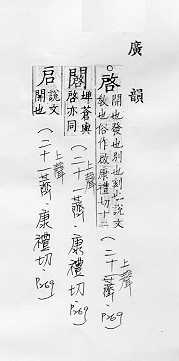 廣韻
啓 開也發也別也刻也說文
教也俗作啟康禮切十二
(二十一薺・康禮切・P269)
上聲
闙 埤蒼與
啓亦同
(二十一薺・康禮切・P269)
上聲
启 說文
開也
(二十一薺・康禮切・P269)
上聲